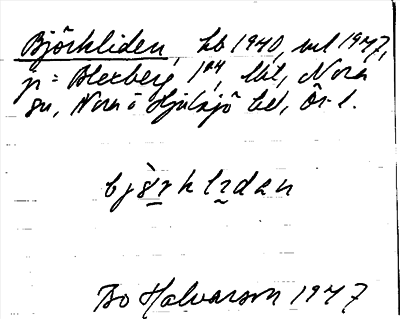 Björkliden, hb 1940, ml 1947,
på Blexberg 1⁷⁴, lbt, Nora
sn, Nora o Hjulsjö bd, Ör. l.
bjö̀rklıdan
Bo Halvarson 1947